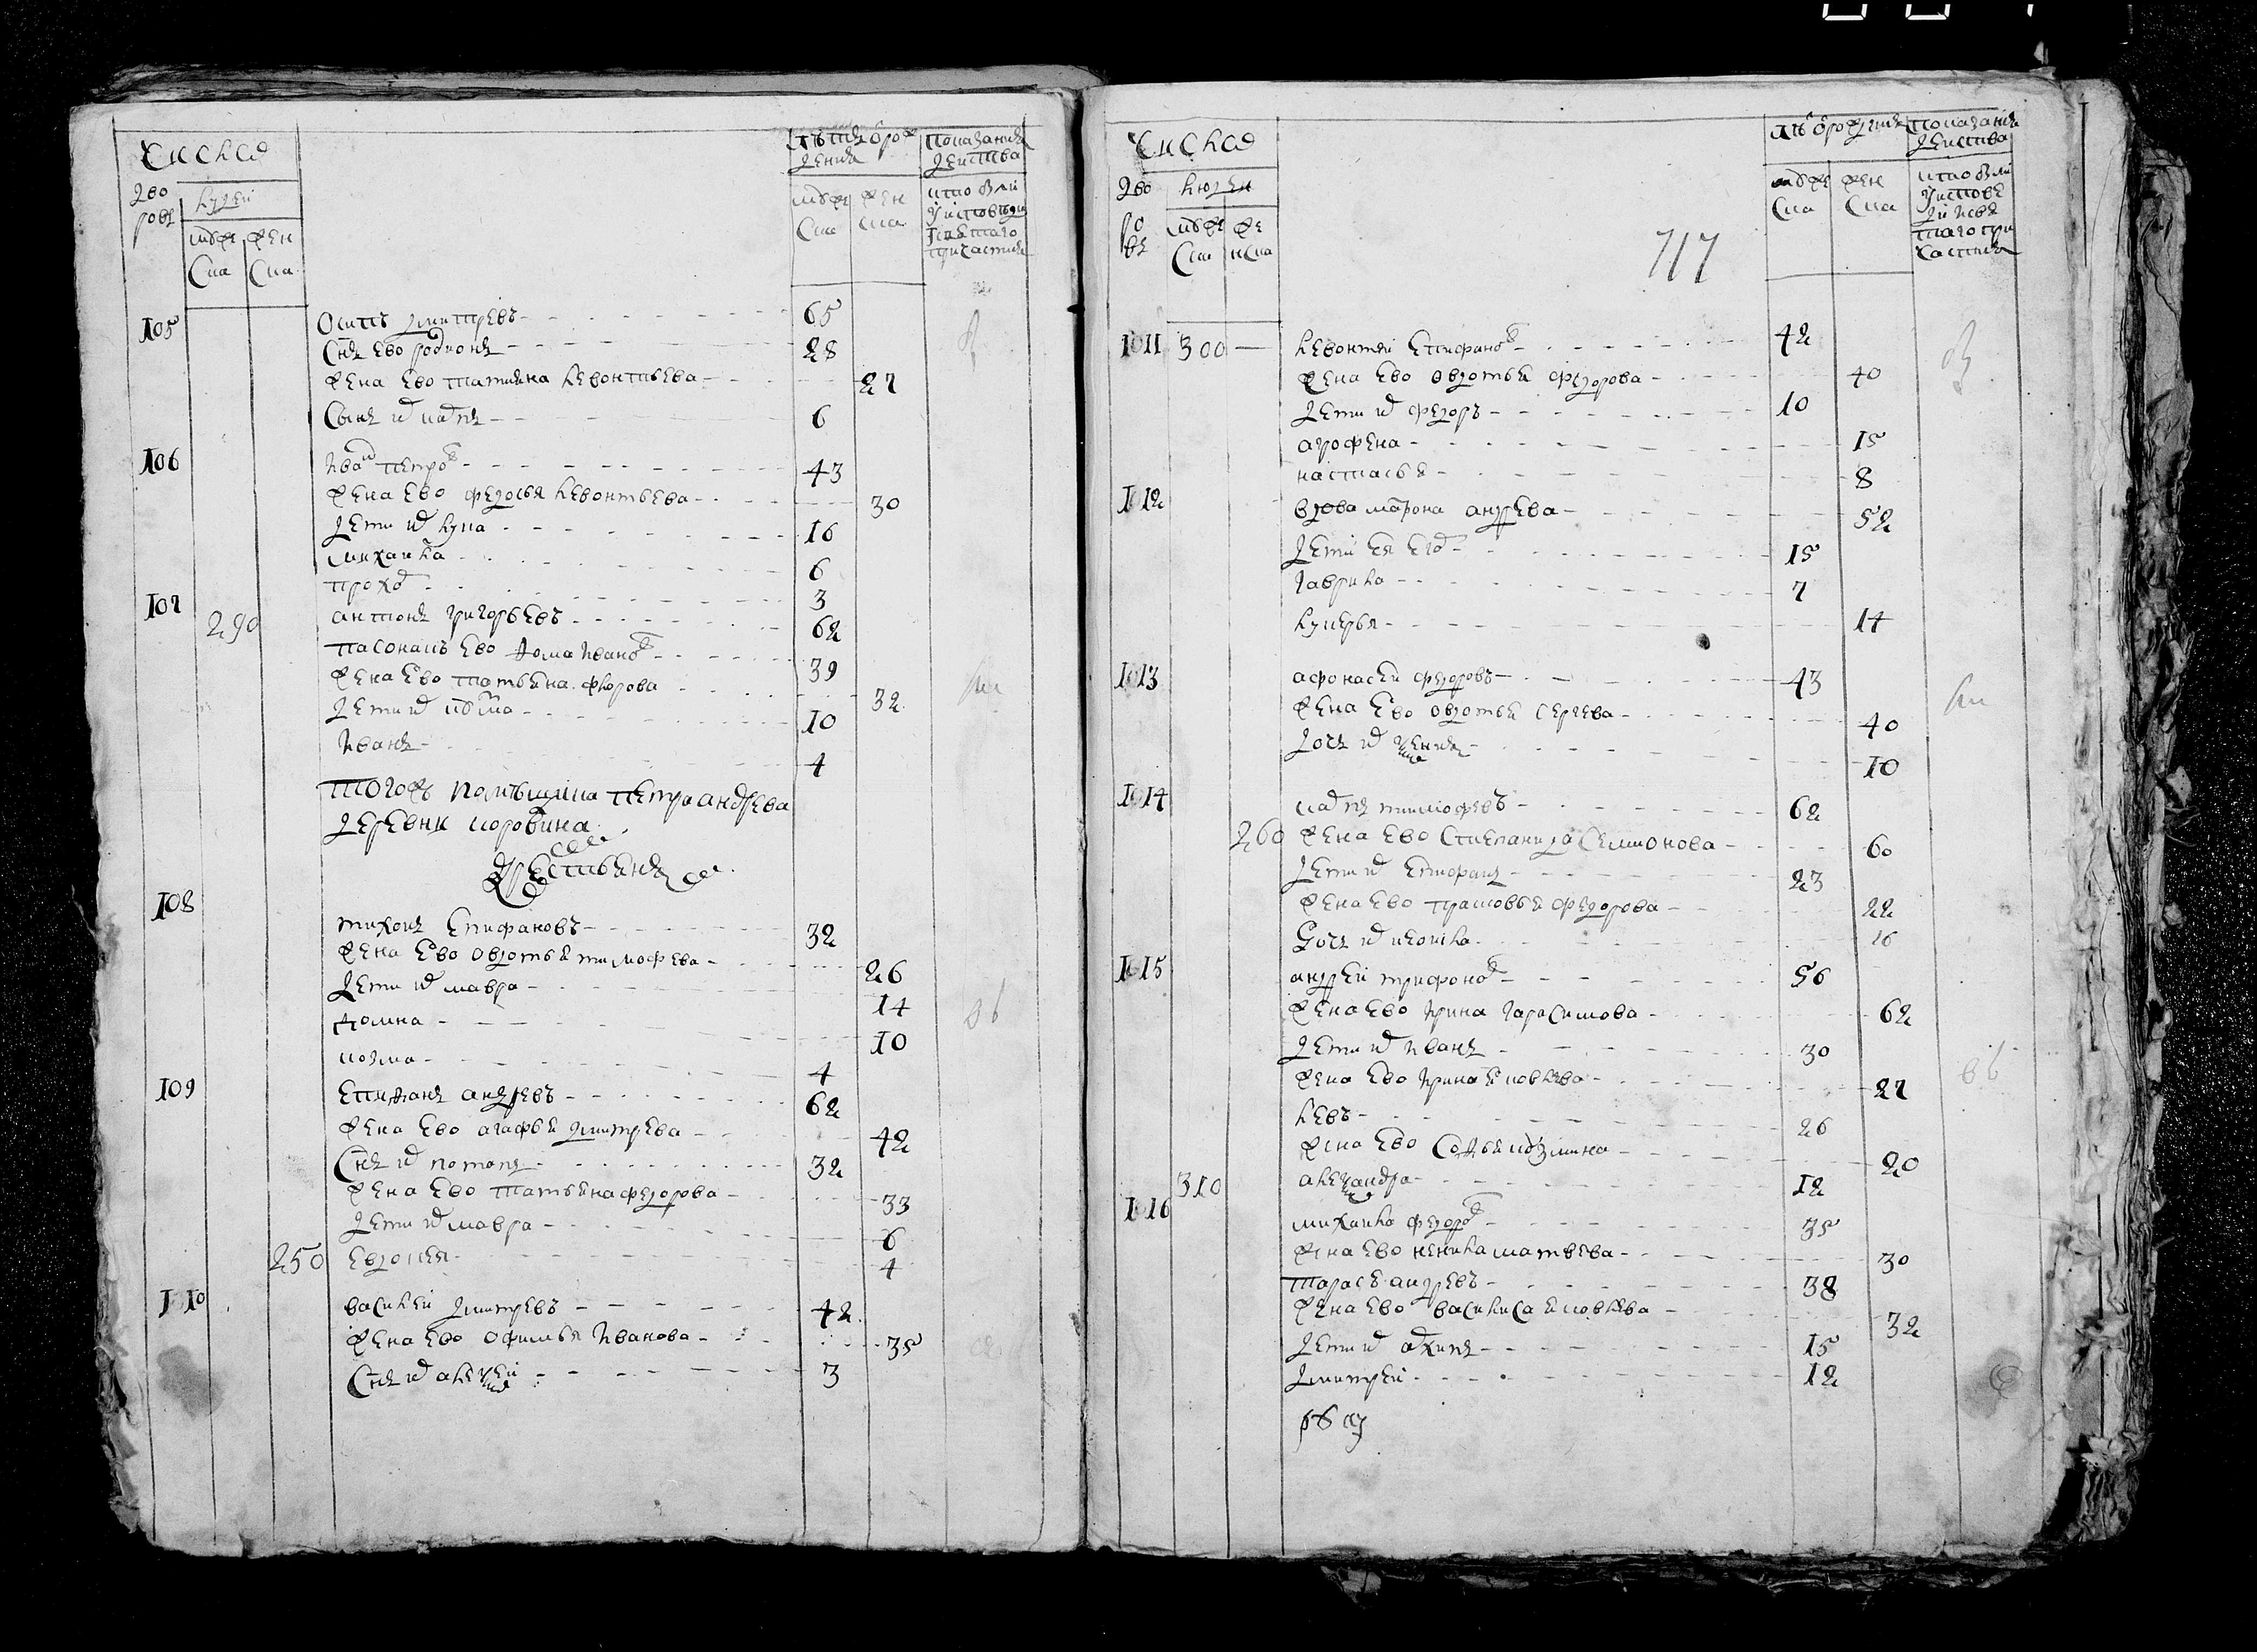 Число
дво
ровъ
людей
мужес
ска
жен
ска
лѣта от рож
дения
мужес
ска
жен
ска
показания
действа
кто были
у исповеди
и святаго
причастия
105
Осипъ Дмитревъ 65
Снъ ево Родионъ 28
Жена ево Татияна Левонтьева 27
Сынъ их Карпъ 6
106
Иван Петров 43
Жена ево Федосья Левонтьева 30
Дети их Лука 16
Михаила 6
Прохор 3
107
290
Антонъ Григорьевъ 62
Пасонакъ ево Фома Иванов 39
Жена ево Татьяна Флорова 32
Дети их Кузма 10
Иванъ 4
Тогожъ помѣщика Петра Андреева
деревни
Крестьяня
108
Тихонъ Епифановъ 32
Жена ево Овдотья Тимофеева 26
Дети их Мавра 14
Домна 10
Козма 4
109
Епифанъ Андревъ 62
Жена ево Агафья Дмитрева 42
Снъ их Потапъ 32
Жена ево Татьяна Федорова 33
Дети их Мавра 6
250
Евдокея 4
1010
Василей Дмитревъ 42
Жена ево Офимья Иванова 35
Снъ их Алексей 3
Число
дво
ро
въ
людей
мужес
ска
же
нска
717
лѣт от рождения
мужес
ска
жен
ска
показания
действа
кто были
у испове
ди и свя
таго при
частия
1011 300
Левонтей Епифанов 42
Жена ево Овдотья Федорова 40
Дети их Федоръ 10
Агрофена 15
Настасья 8
1012
Вдова Матрона Андрева 52
Дети ея Егор 15
Гаврила 7
Лукерья 14
1013
Афонасей Федоровъ 43
Жена ево Овдотья Сергева 40
Дочь их Ксения 10
1014
Карпъ Тимофевъ 62
260
Жена ево Степанида Семионова 60
Дети их Епифанъ 23
Жена ево Прасковья Федорова 22
Дочь их 16
1015
Андрей Трифонов 56
Жена ево Ирина Гарасимова 62
Дети их Иванъ 30
Жена ево Ирина Яковлева 27
Левъ 26
Жена ево Софья Кузмина 20
310
Александра 12
1016
Михаила Федоров 35
Жена ево Ненила Матвева 30
Тарасъ Андревъ 38
Жена ево Василиса Яковлева 32
Дети их Архипъ 15
Дмитрей 12